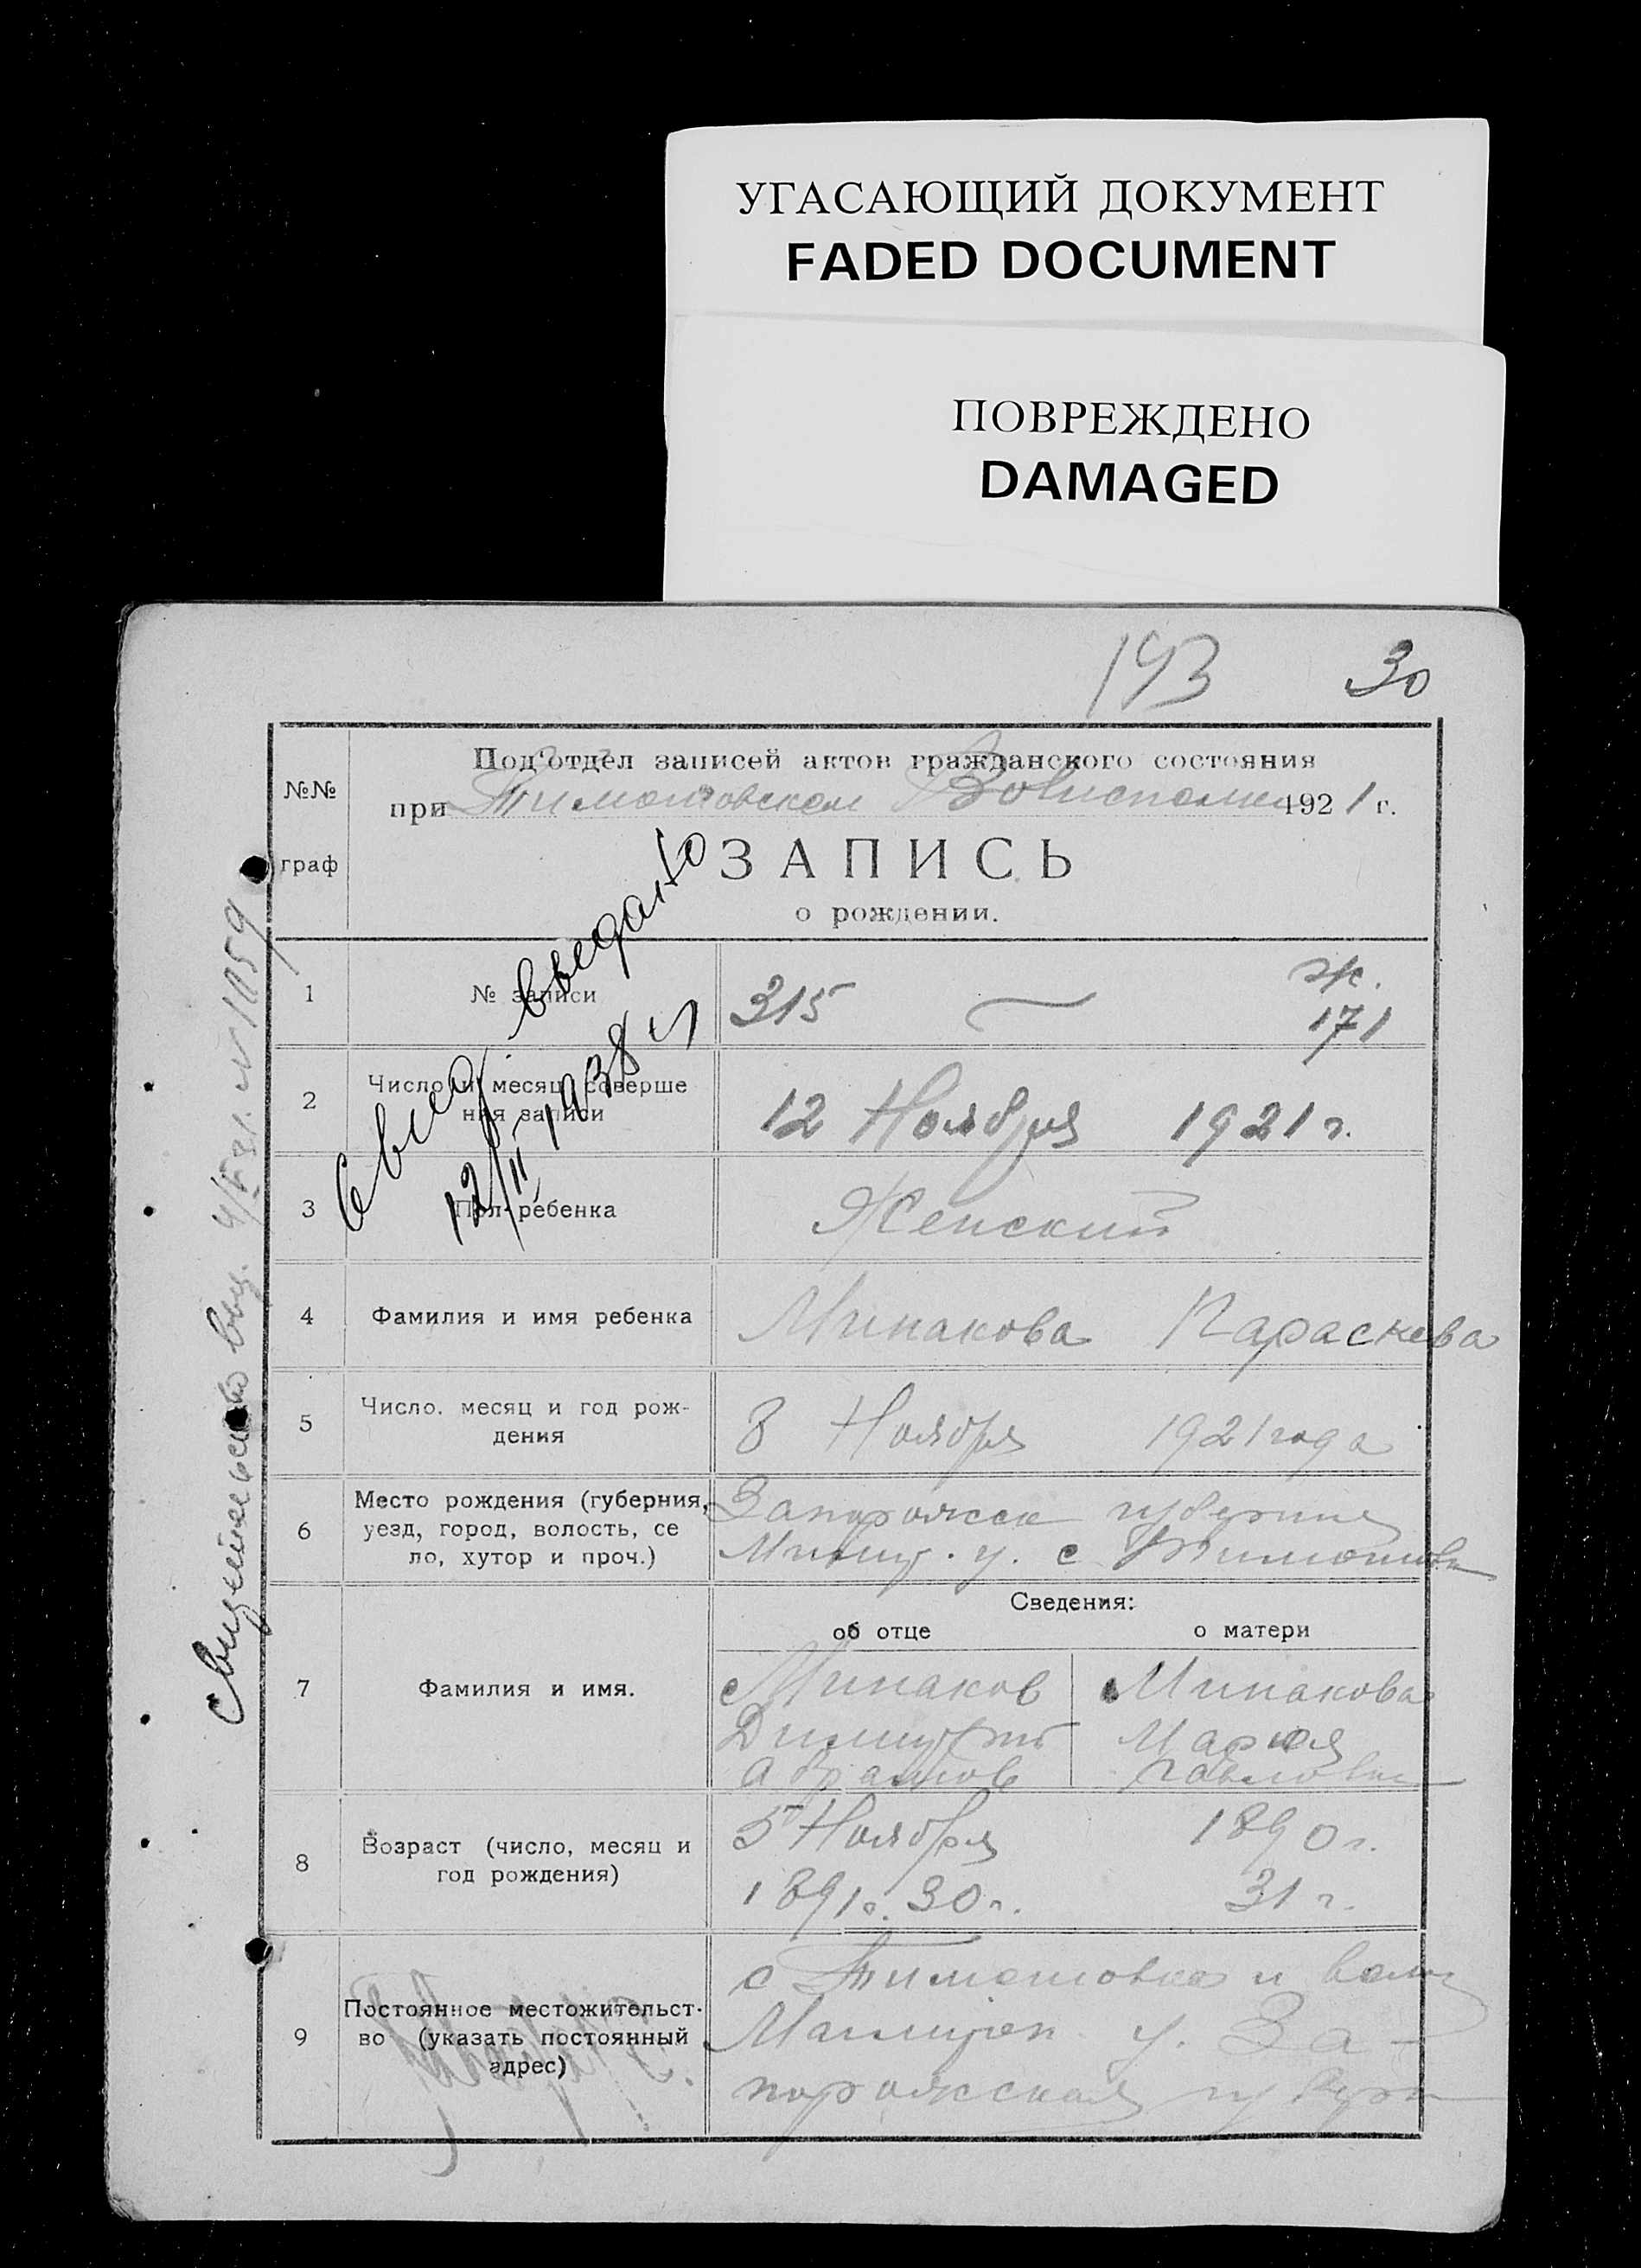 УГАСАЮЩИЙ ДОКУМЕНТ
FADED DOCUMENT
ПОВРЕЖДЕНО
DAMAGED
193 30
№№ граф
Под'отдел записей актов гражданского состояния
при Тимошовском Волисполкоме 1921 г.
ЗАПИСЬ
о рождении.
1 № записи 315 ж. 171
2 Число и месяц соверше
ния записи
12 Ноября 1921 г.
3 Пол ребенка Женский
4 Фамилия и имя ребенка Минакова Параскева
5 Число, месяц и год рож-
дения
8 Ноября 1921 года
6 Место рождения (губерния,
уезд, город, волость, се
ло, хутор и проч.)
Запорожск губерния
у. с Тимошовка
Сведения:
об отце о матери
7 Фамилия и имя.
Минаков Минакова
Димитрий Мария
Абрамов Павловна
8 Возраст (число, месяц и
год рождения)
5 Ноября 1890 г.
1891 г. 30 г. 31 г.
9 Постоянное местожительст-
во (указать постоянный
адрес)
с Тимошовка и волос
у. За-
порожская губерн
12/II 1938
Свидетельство выд. №1059